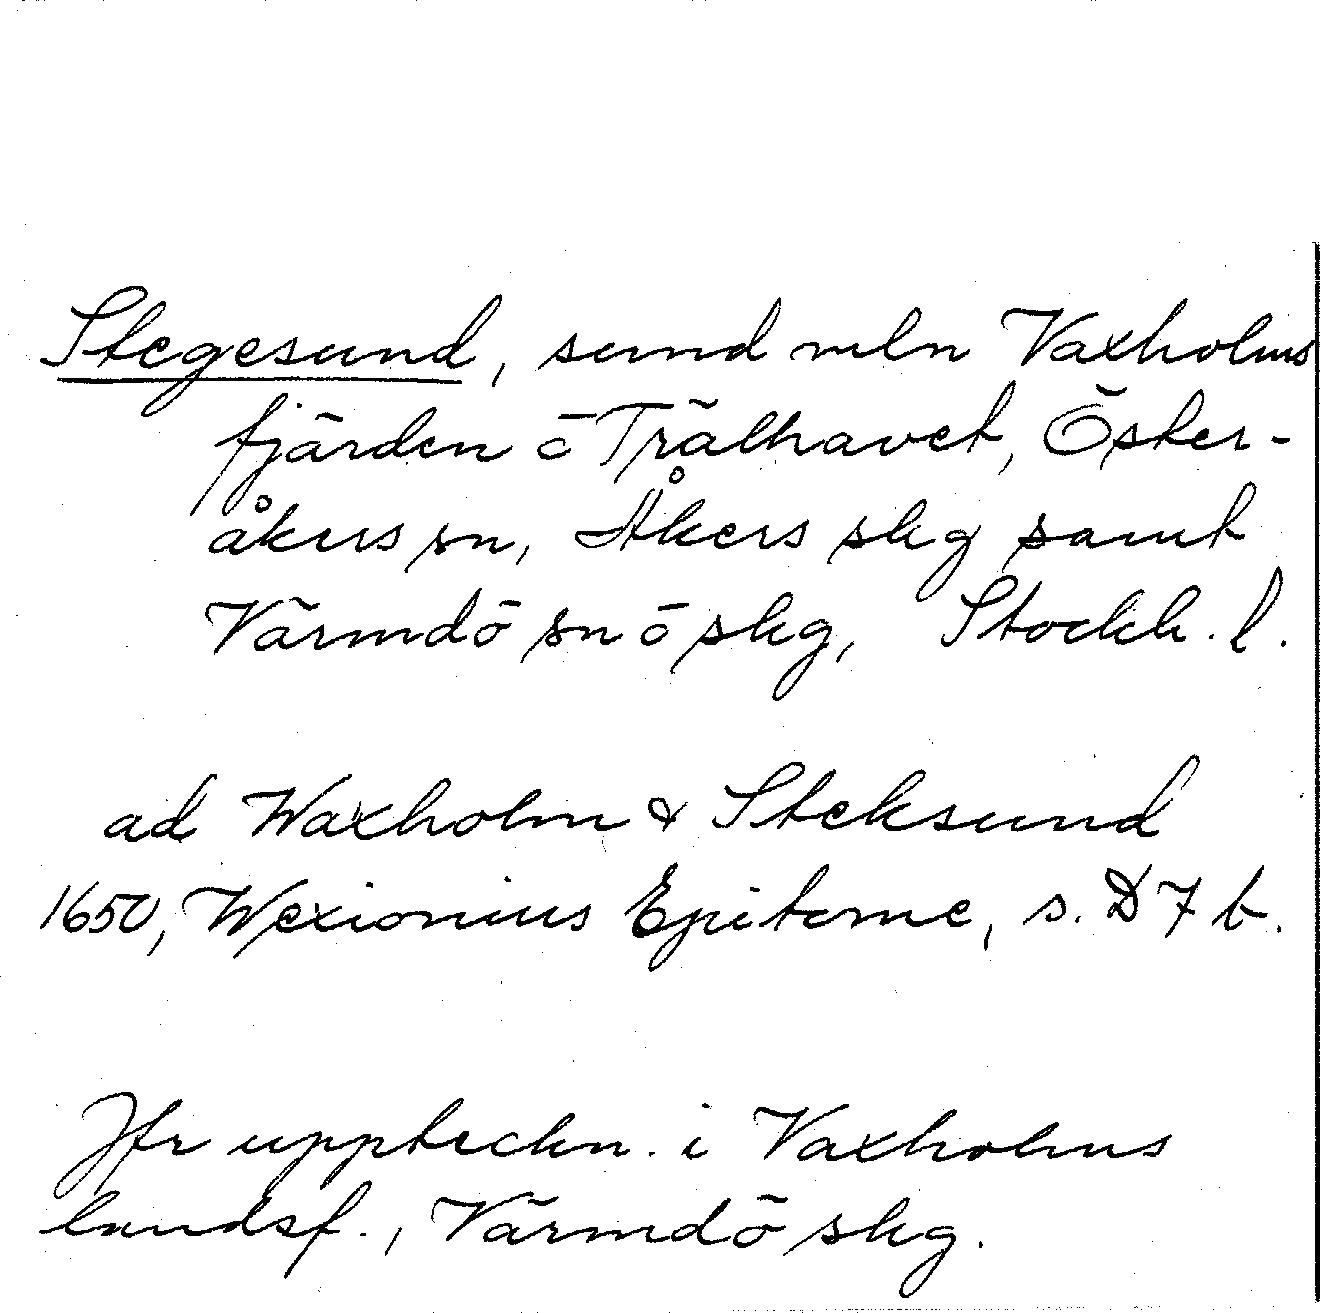 Stegesund, sund mln Vaxholms
fjärden o Trälhavet, Öster-
åkers sn, Åkers skg samt
Värmdö sn o skg, Stockh. l.
ad Waxholm & Steksund
1650, Wexionius Epitome, s. D 7 b.
Jfr uppteckn. i Vaxholms
landsf., Värmdö skg.